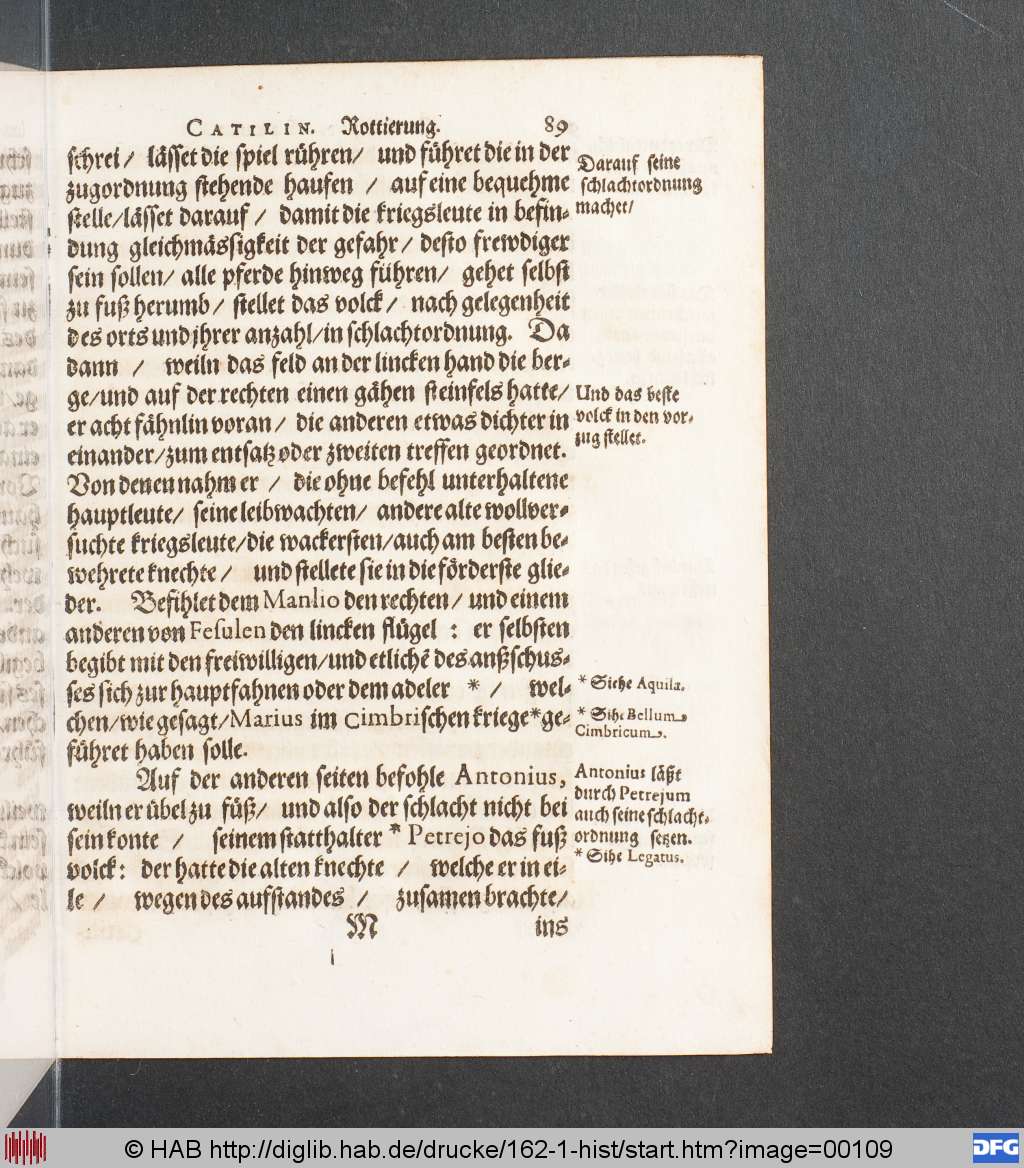 CATILIN. Rottierung. 89
schrei/ lässet die spiel rühren/ und führet die in der
zugordnung stehende haufen / auf eine bequehme
stelle/lässet darauf/ damit die kriegsleute in befin-
dung gleichmässigkeit der gefahr/ desto frewdiger
sein sollen/ alle pferde hinweg führen/ gehet selbst
zu fuß herumb/ stellet das volck/ nach gelegenheit
des orts und jhrer anzahl/in schlachtordnung. Da
dann / weiln das feld an der lincken hand die ber-
ge/und auf der rechten einen gähen steinfels hatte/
er acht fähnlin voran/ die anderen etwas dichter in
einander/zum entsatz oder zweiten treffen geordnet.
Von denen nahm er / die ohne befehl unterhaltene
hauptleute/ seine leibwachten/ andere alte wollver-
suchte kriegsleute/die wackersten/auch am besten be-
wehrete knechte/ und stellete sie in die förderste glie-
der. Befihlet dem Manlio den rechten/ und einem
anderen von Fesulen den lincken flügel : er selbsten
begibt mit den freiwilligen/und etlichē des anßschus-
ses sich zur hauptfahnen oder dem adeler * / wel-
chen/wie gesagt/Marius im Cimbrischen kriege*ge-
führet haben solle.
Auf der anderen seiten befohle Antonius,
weiln er übel zu füß/ und also der schlacht nicht bei
sein konte / seinem statthalter * Petrejo das fuß
volck: der hatte die alten knechte / welche er in ei-
le / wegen des aufstandes / zusamen brachte/
M ins
Darauf seine
schlachtordnung
machet/
Und das beste
volck in den vor-
zug stellet.
* Siehe Aquila.
* Sihe Bellum
Cimbricum.
Antonius läßt
durch Petrejum
auch seine schlacht-
ordnung setzen.
* Sihe Legatus.
© HAB http://diglib.hab.de/drucke/162-1-hist/start.htm?image=00109
DFG